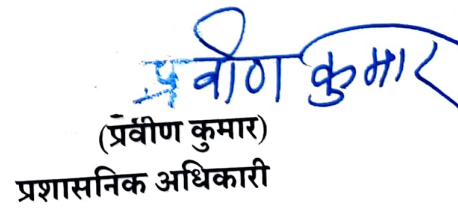 प्रवीण कुमार
(प्रवीण कुमार)
प्रशासनिक अधिकारी